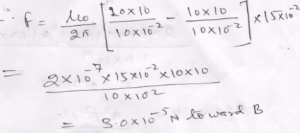 ∴ f = μ₀/2π [20×10/10×10⁻² - 10×10/10×10⁻²] ×15×10⁻²
= 2×10⁻⁷×15×10⁻²×10×10/10×10⁻²
= 3.0×10⁻⁵ N toward B